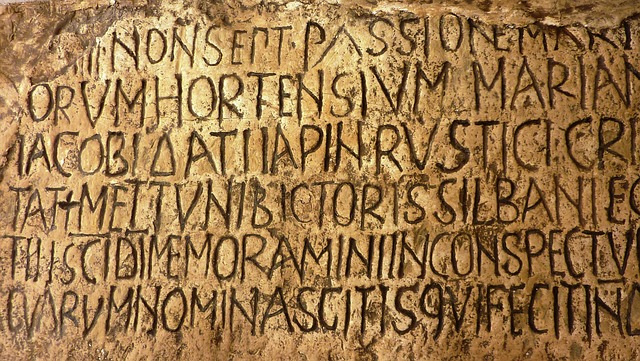 III NON SEPT PASSIONE MARTYR
ORVM HORTENSIVM MARIAN
IACOBI DATI IAPIN RVSTICI CRI
TAT METTVNI BICTORIS SILBANI E
TII SCI DI MEMORAMINI IN CONSPECTV
QVARVM NOMINA SCITIS QVI FECIT IN